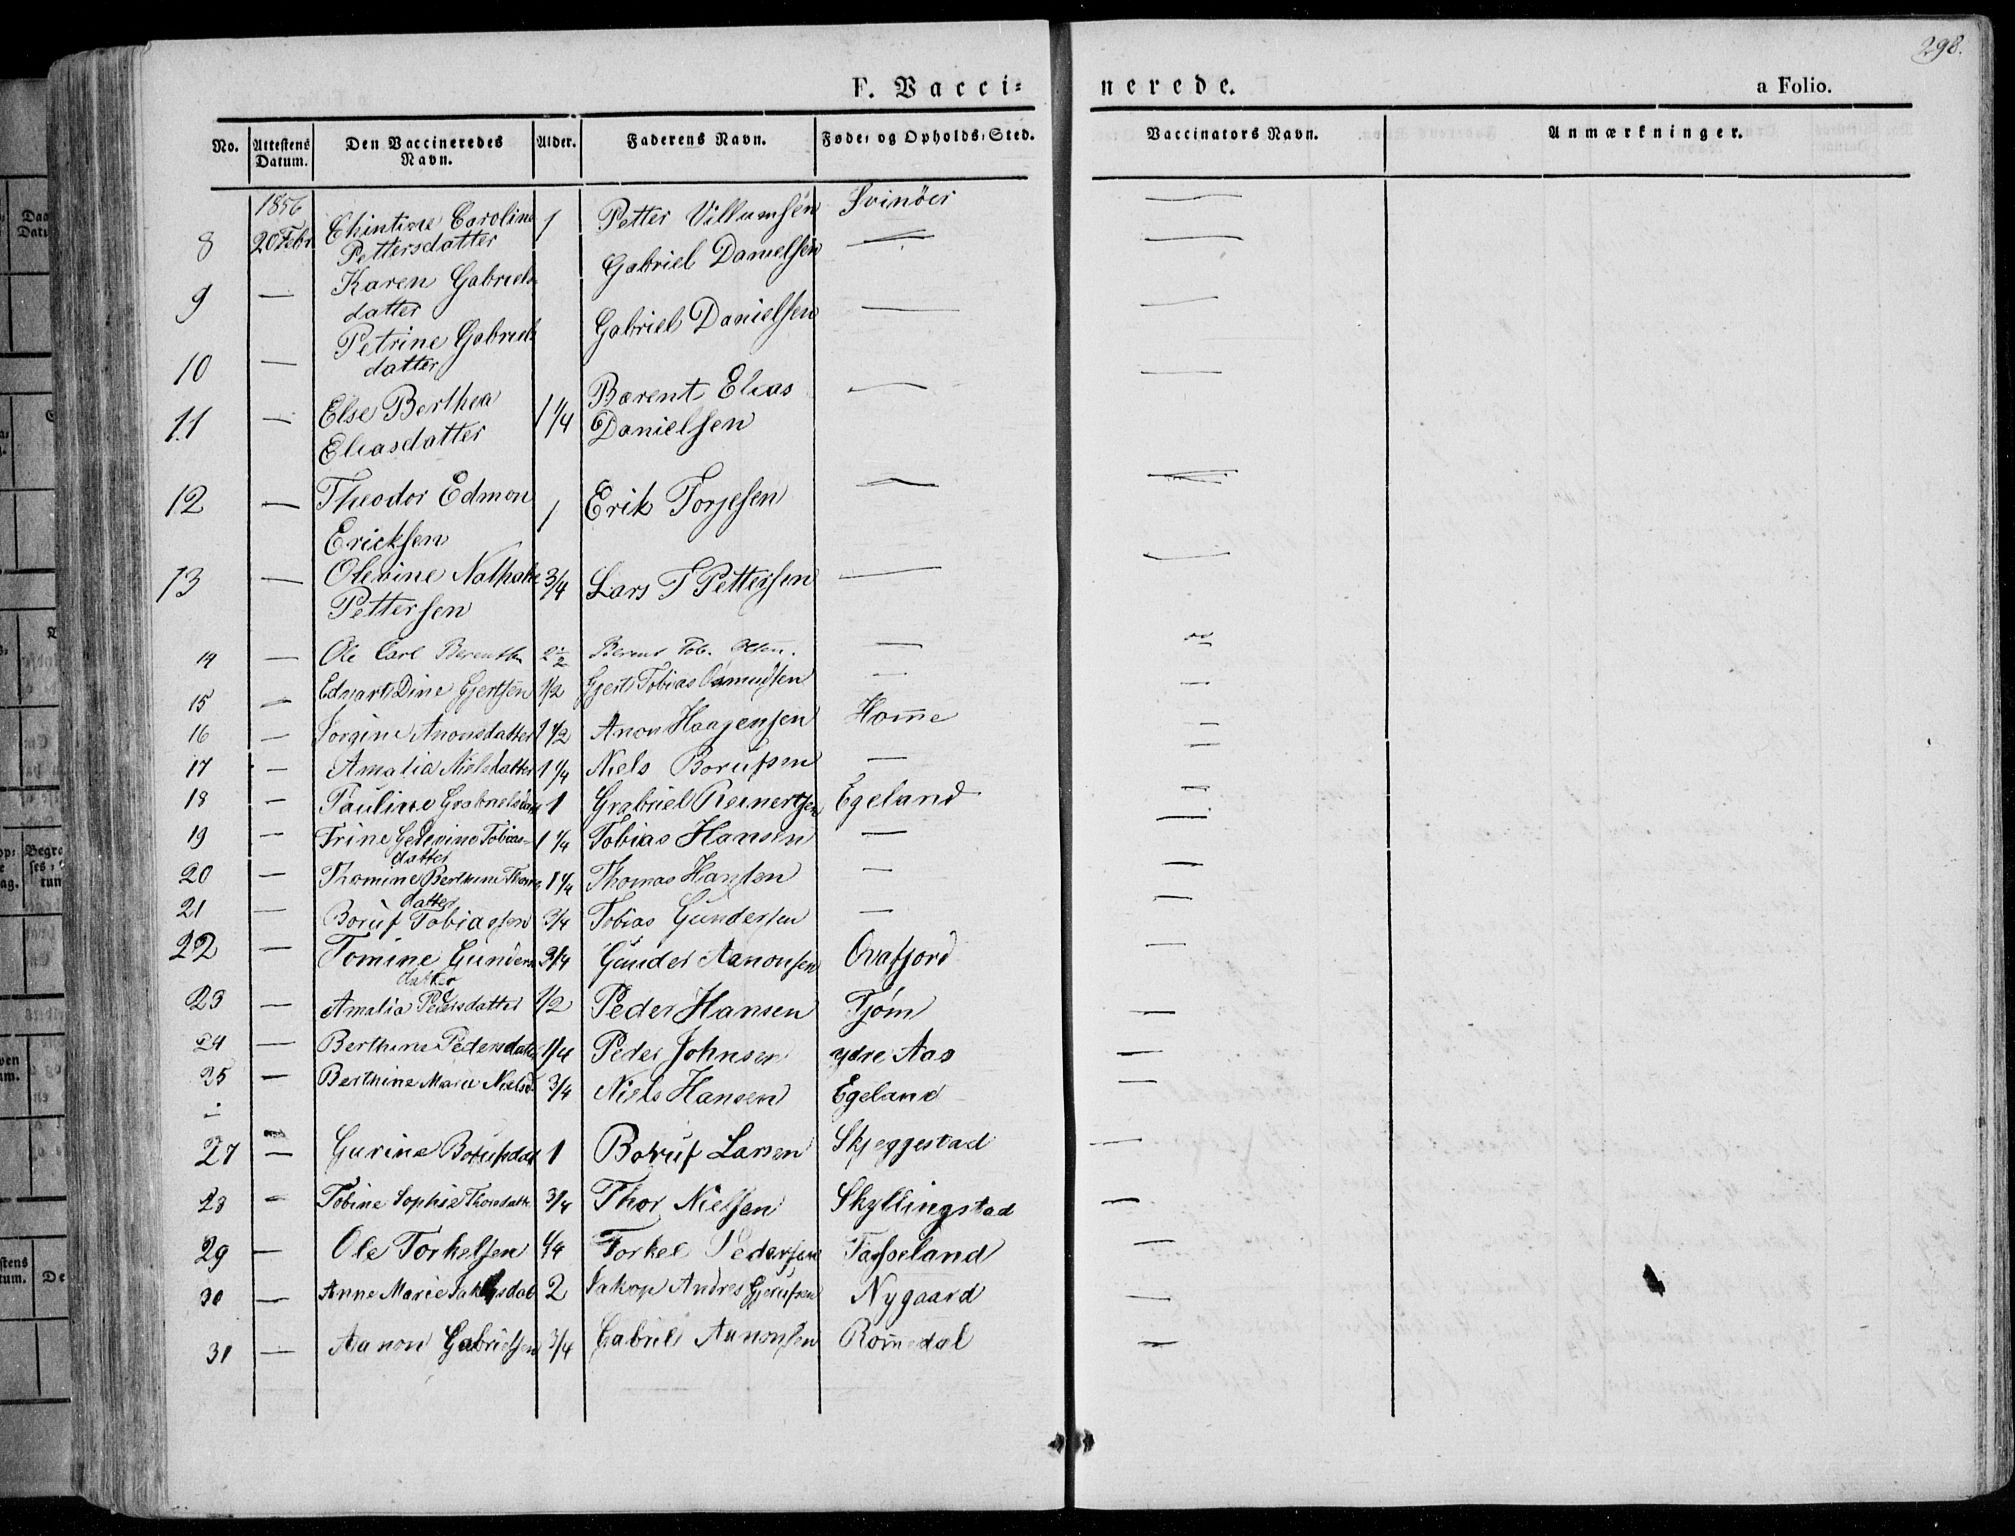 298.
F. Vacci= nerede. a Folio.
No. Attestens Datum. Den Vaccineredes Navn. Alder. Faderens Navn. Føde- og Opholds-Sted. Vaccinators Navn. Anmærkninger.
1856
8 20 Febr Chintine Caroline Pettersdatter 1 Petter Villumsen Svinöer —
9 — Karen Gabriels datter Gabriel Danielsen — —
10 — Petrine Gabriels datter Gabriel Danielsen — —
11 — Else Berthea Eliasdatter 1 1/4 Barent Elias Danielsen — —
12 — Theodor Edmon Ericksen 1 Erik Torjesen — —
13 — Olevine Nathalie Pettersen 3/4 Lars T Pettersen — —
14 — Ole Carl Berentsen 2 1/2 Berent Tob. Olsen. — —
15 — Edvart Dine Gjertsen 1/2 Gjert Tobias Osmundsen — —
16 — Sorine Anonsdatter 1 1/2 Anon Haagensen Home —
17 — Amalia Nielsdatter 1 1/4 Niels Borufsen — —
18 — Pauline Grabrielsdatt 1 Grabriel Reinertsen Egeland —
19 — Trine Tobias= datter 1 1/4 Tobias Hansen — —
20 — Thomine Berthine Thoms datter 1 1/4 Thomas Hansen — —
21 — Boruf Tobiassen 3/4 Tobias Gundersen — —
22 — Tomine Gunders datter 3/4 Gunder Aanonsen Ovafjord —
23 — Amalia Pedersdatter 1/2 Peder Hansen Tjöm —
24 — Berthine Pedersdatter 1/4 Peder Johnsen ydre Aas —
25 — Berthine Marie Nielsd. 3/4 Niels Hansen Egeland —
27 — Gurine Borufsdatt 1 Boruf Larsen Skjeggestad —
28 — Tobine Sophie Thorsdatter 3/4 Thor Nielsen Skyllingstad —
29 — Ole Torkelsen 1/4 Torkel Pedersen Tarseland —
30 — Anne Marie Jakobsdat 2 Jakop Andres Gjerufsen Nygaard —
31 — Aanon Gabrielsen 3/4 Gabriel Aanonsen Romedal —